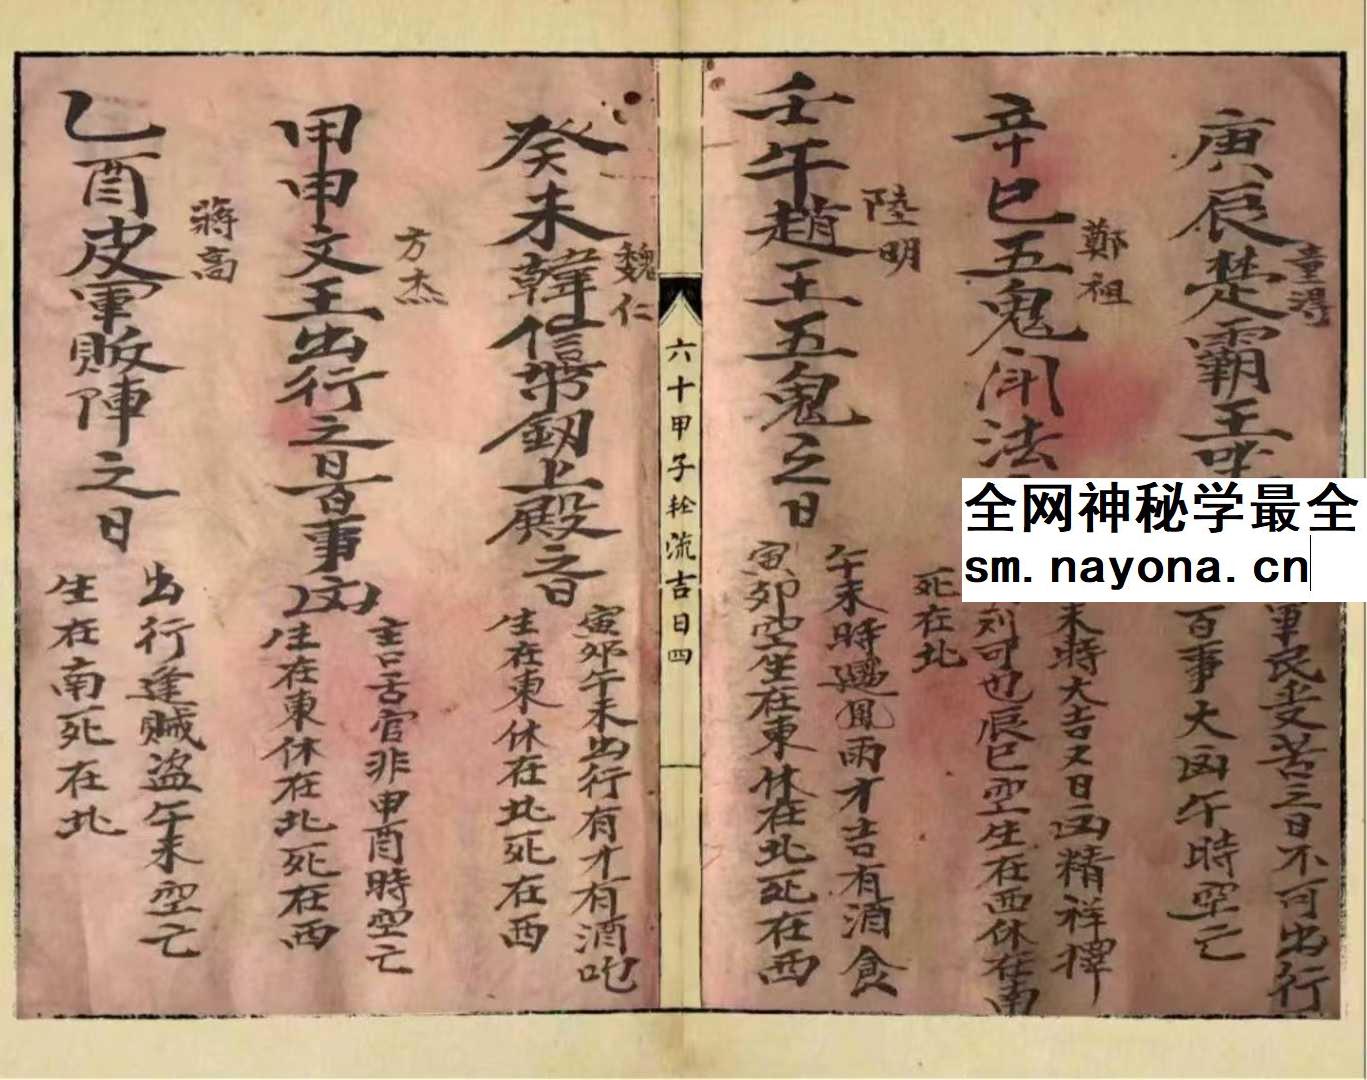 庚辰楚霸王
童得
軍民受苦之日不可出行
百事大凶午時空亡
辛巳五鬼闹法
鄭祖
未時大吉又日凶精祥擇
刻可也辰巳空生在西休在南
死在北
壬午趙王五鬼之日
陸明
午未時遇風雨才吉有酒食
寅卯空生在東休在北死在西
六十甲子轮流吉日四
癸未韓信帶劔上殿之日
魏仁
寅卯午未出行有才有酒吃
生在東休在北死在西
甲申文王出行之日百事凶
方杰
主口舌官非申酉時空亡
生在東休在北死在西
乙酉皮軍敗陣之日
蔣高
出行逢贼盗午未空亡
生在南死在北
全网神秘学最全
sm.nayona.cn